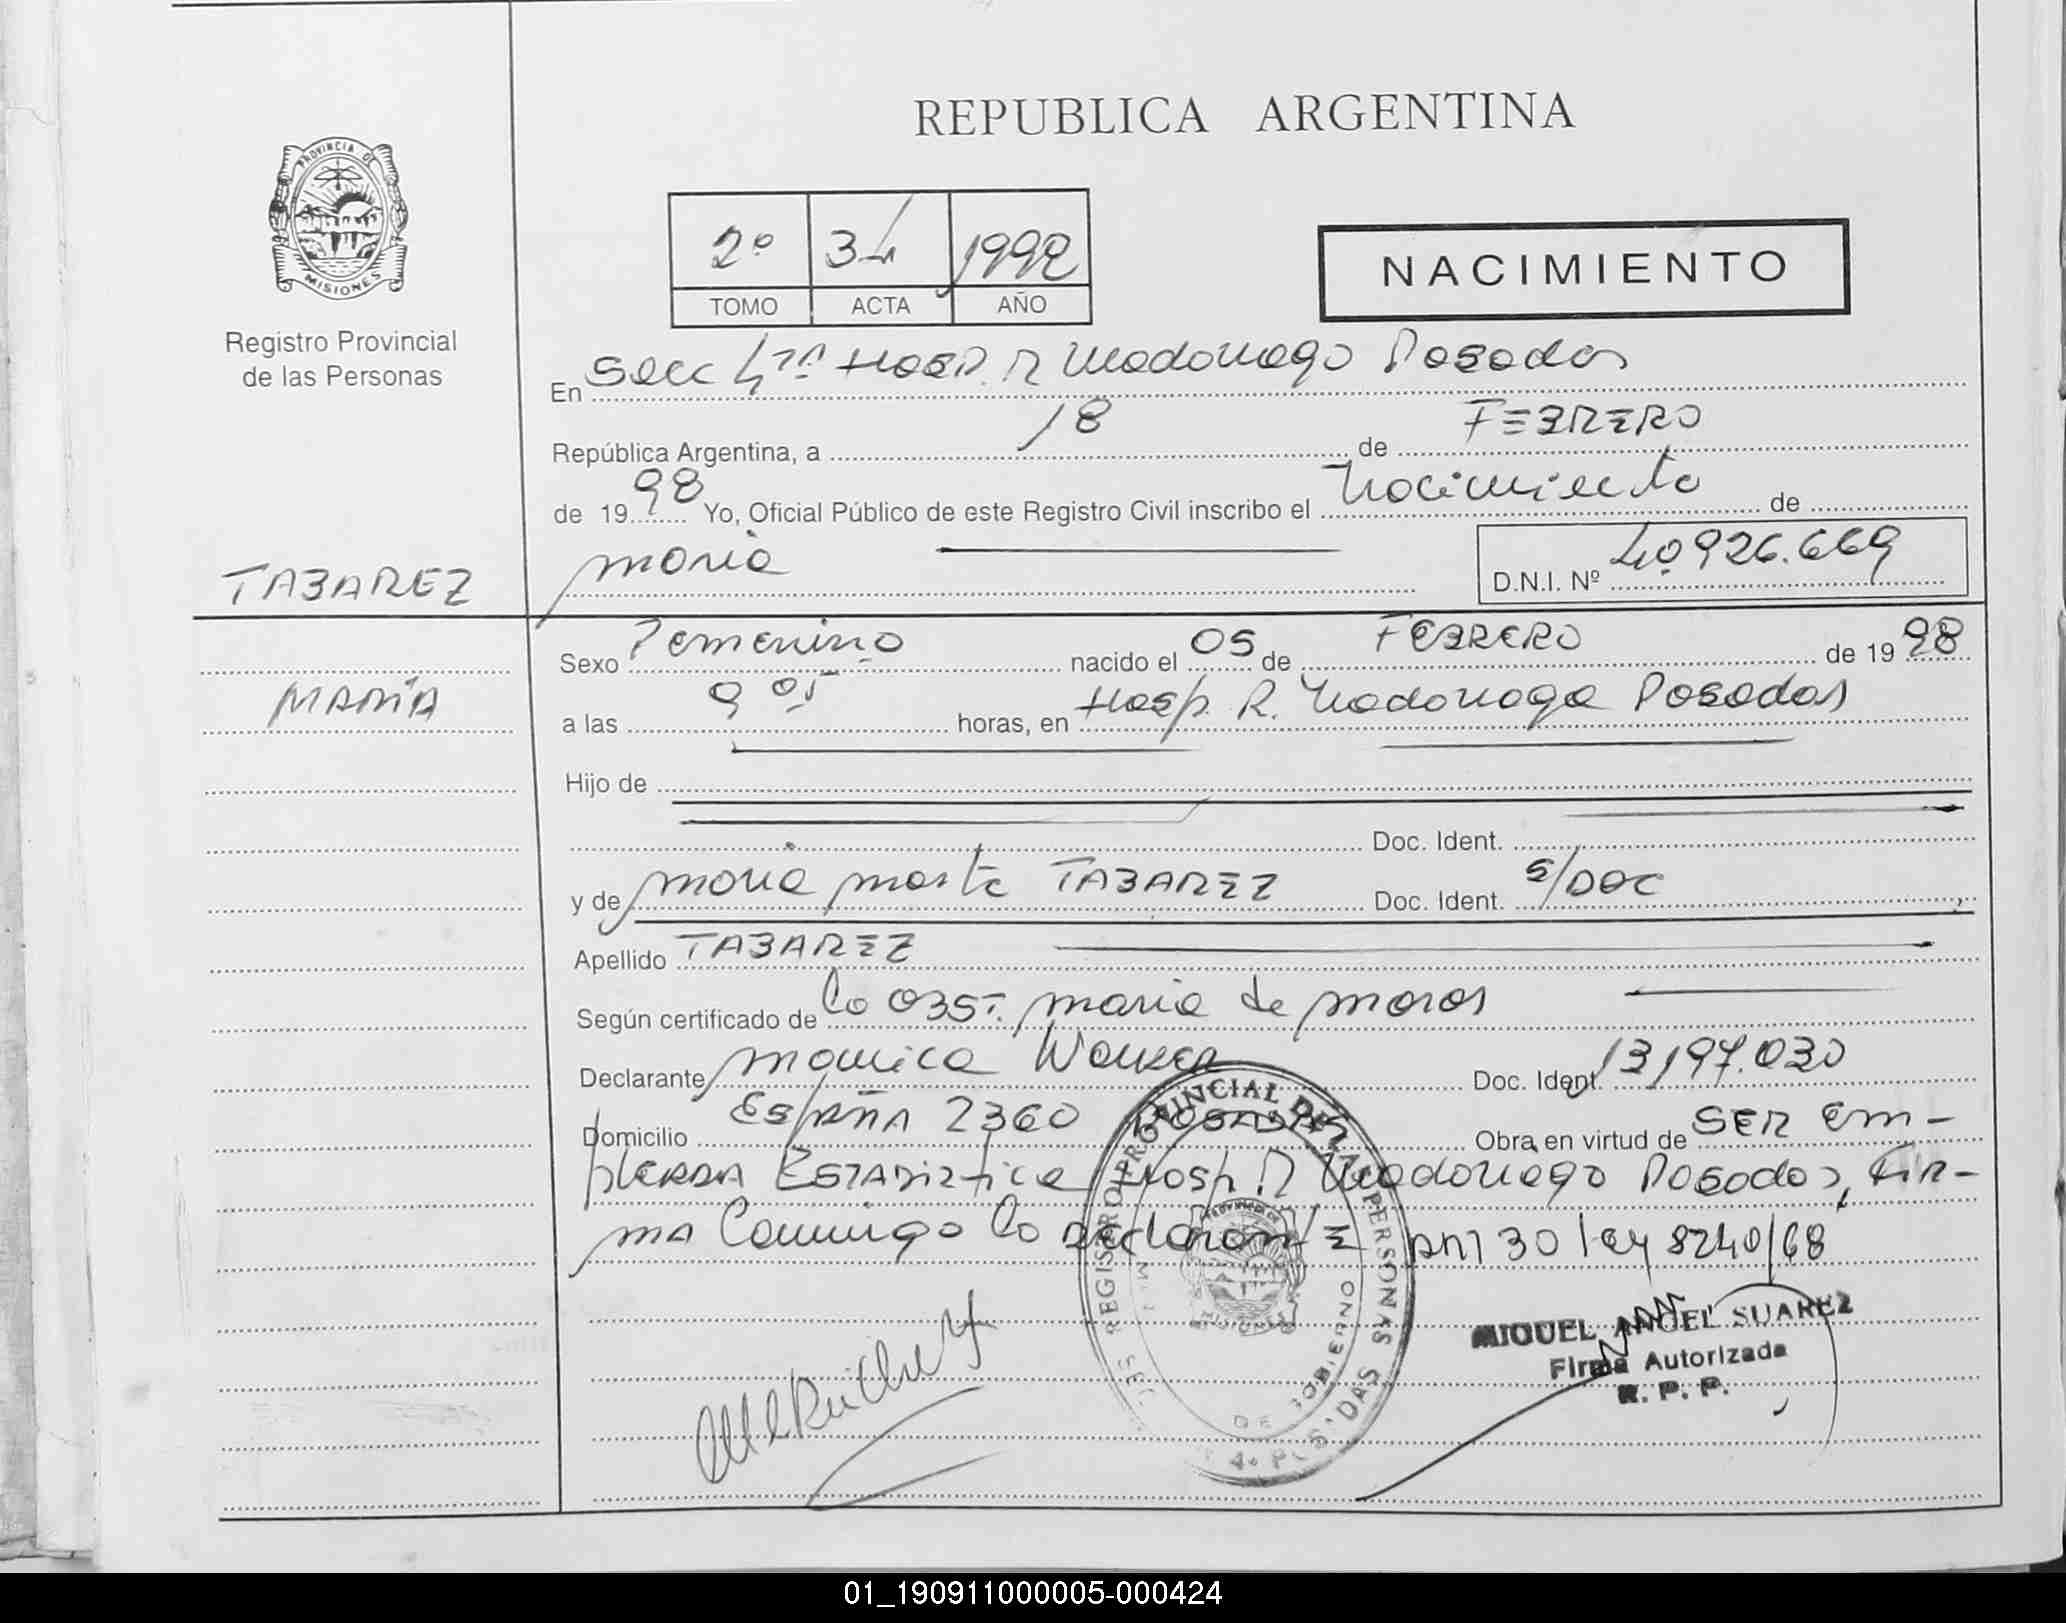 REPUBLICA ARGENTINA
PROVINCIA DE MISIONES
Registro Provincial
de las Personas
2º 34 1998
TOMO ACTA AÑO
NACIMIENTO
En Secc 4ta Hosp. R Madariaga Posadas
República Argentina, a 18 de FEBRERO
de 1998 Yo, Oficial Público de este Registro Civil inscribo el Nacimiento de
TABAREZ
maria
D.N.I. Nº 40.926.669
Sexo Femenino nacido el 05 de FEBRERO de 1998
MARÍA
a las 9 05 horas, en Hosp. R. Madariaga Posadas
Hijo de
Doc. Ident.
y de maria marta TABAREZ Doc. Ident. S/DOC
Apellido TABAREZ
Según certificado de la OBST. maria de moros
Declarante monica Doc. Ident. 13197.030
Domicilio ESPAÑA 2360 POSADAS Obra en virtud de SER Em-
pleada Estadistica Hosp. R Madariaga Posadas, Fir-
ma Conmigo la declarante Art 30 ley 8240/68
REGISTRO PROVINCIAL DE LAS PERSONAS
PROVINCIA DE MISIONES
DE GOBIERNO
SEC 4a POSADAS
MIGUEL ANGEL SUAREZ
Firma Autorizada
R. P. P.
01_190911000005-000424